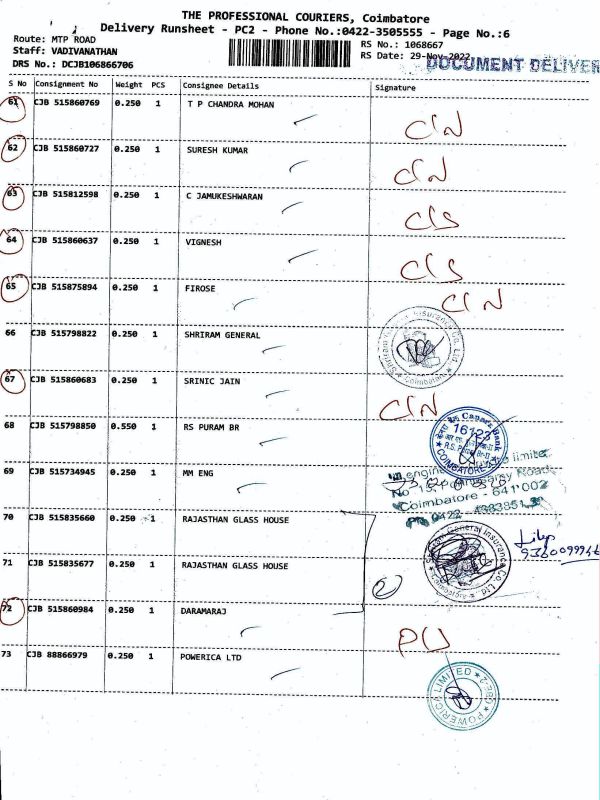 THE PROFESSIONAL COURIERS, Coimbatore
Delivery Runsheet - PC2 - Phone No.:0422-3505555 - Page No.:6
Route: MTP ROAD
RS No.: 1068667
Staff: VADIVANATHAN
RS Date: 29-Nov-2022
DRS No.: DCJB106866706
DOCUMENT DELIVER
S No Consignment No Weight PCS Consignee Details Signature
61 CJB 515860769 0.250 1 T P CHANDRA MOHAN
C/N
62 CJB 515860727 0.250 1 SURESH KUMAR
C/N
63 CJB 515812598 0.250 1 C JAMUKESHWARAN
C/S
64 CJB 515860637 0.250 1 VIGNESH
C/S
65 CJB 515875894 0.250 1 FIROSE
C/N
66 CJB 515798822 0.250 1 SHRIRAM GENERAL
Insurance Co. Ltd
Coimbatore
67 CJB 515860683 0.250 1 SRINIC JAIN
C/N
68 CJB 515798850 0.550 1 RS PURAM BR
Canara Bank
16123
COIMBATORE
69 CJB 515734945 0.250 1 MM ENG
limited
Road
Coimbatore - 641 002
70 CJB 515835660 0.250 1 RAJASTHAN GLASS HOUSE
General Insurance Co. Ltd
71 CJB 515835677 0.250 1 RAJASTHAN GLASS HOUSE
2
72 CJB 515860984 0.250 1 DARAMARAJ
73 CJB 88866979 0.250 1 POWERICA LTD
POWERICA LIMITED